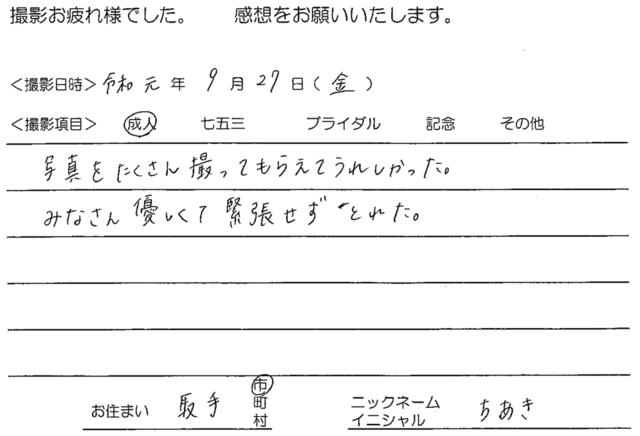 撮影お疲れ様でした。　感想をお願いいたします。
<撮影日時> 令和 元 年 9 月 27 日 ( 金 )
<撮影項目> 成人 七五三 ブライダル 記念 その他
写真をたくさん撮ってもらえてうれしかった。
みなさん優しくて緊張せずとれた。
お住まい 取手 市
町
村
ニックネーム
イニシャル ちあき